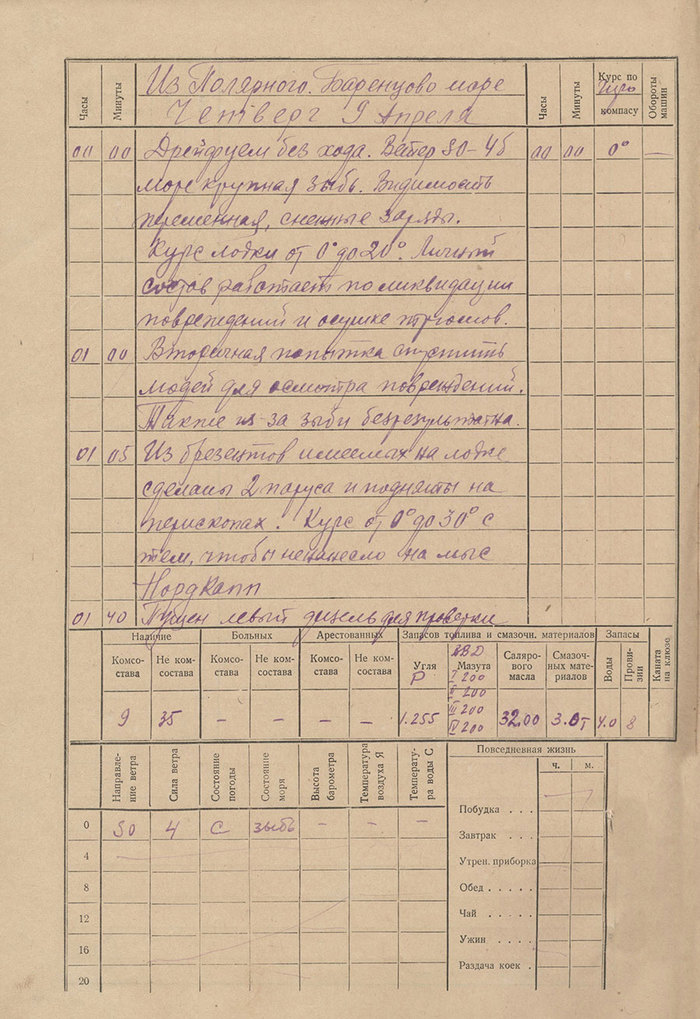 Часы
Минуты
Из Полярного. Баренцово море
Четверг 9 Апреля
Часы
Минуты
Курс по
компасу
Обороты машин
00 00 Дрейфуем без хода. Ветер SO-4б 00 00 0° —
море крупная зыбь. Видимость
переменная, снежные заряды.
Курс лодки от 0° до 20°. Личный
состав работает по ликвидации
повреждений и осушке трюмов.
01 00 Вторичная попытка спустить
людей для осмотра повреждений.
Также из-за зыби безрезультатна.
01 05 Из брезентов имеемых на лодке
сделаны 2 паруса и подняты на
перископах. Курс от 0° до 30° с
тем, чтобы не нанесло на мыс
НордКапп
01 40 Пущен левый дизель для проверки
Наличие Больных Арестованных Запасов топлива и смазочн. материалов Запасы
Комсостава Не комсостава Комсостава Не комсостава Комсостава Не комсостава Угля Мазута Салярового масла Смазочных материалов Воды Провизии Каната на клюзе
Р ВВД
I 200
II 200
III 200
IV 200
9 35 — — — — 1.255 32.00 3.0т 4.0 8
Направление ветра Сила ветра Состояние погоды Состояние моря Высота барометра Температура воздуха Я Температура воды С
0 SO 4 С зыбь — — —
4
8
12
16
20
Повседневная жизнь
ч. м.
Побудка . . .
Завтрак . . .
Утрен. приборка
Обед . . . . .
Чай . . . . .
Ужин . . . .
Раздача коек .